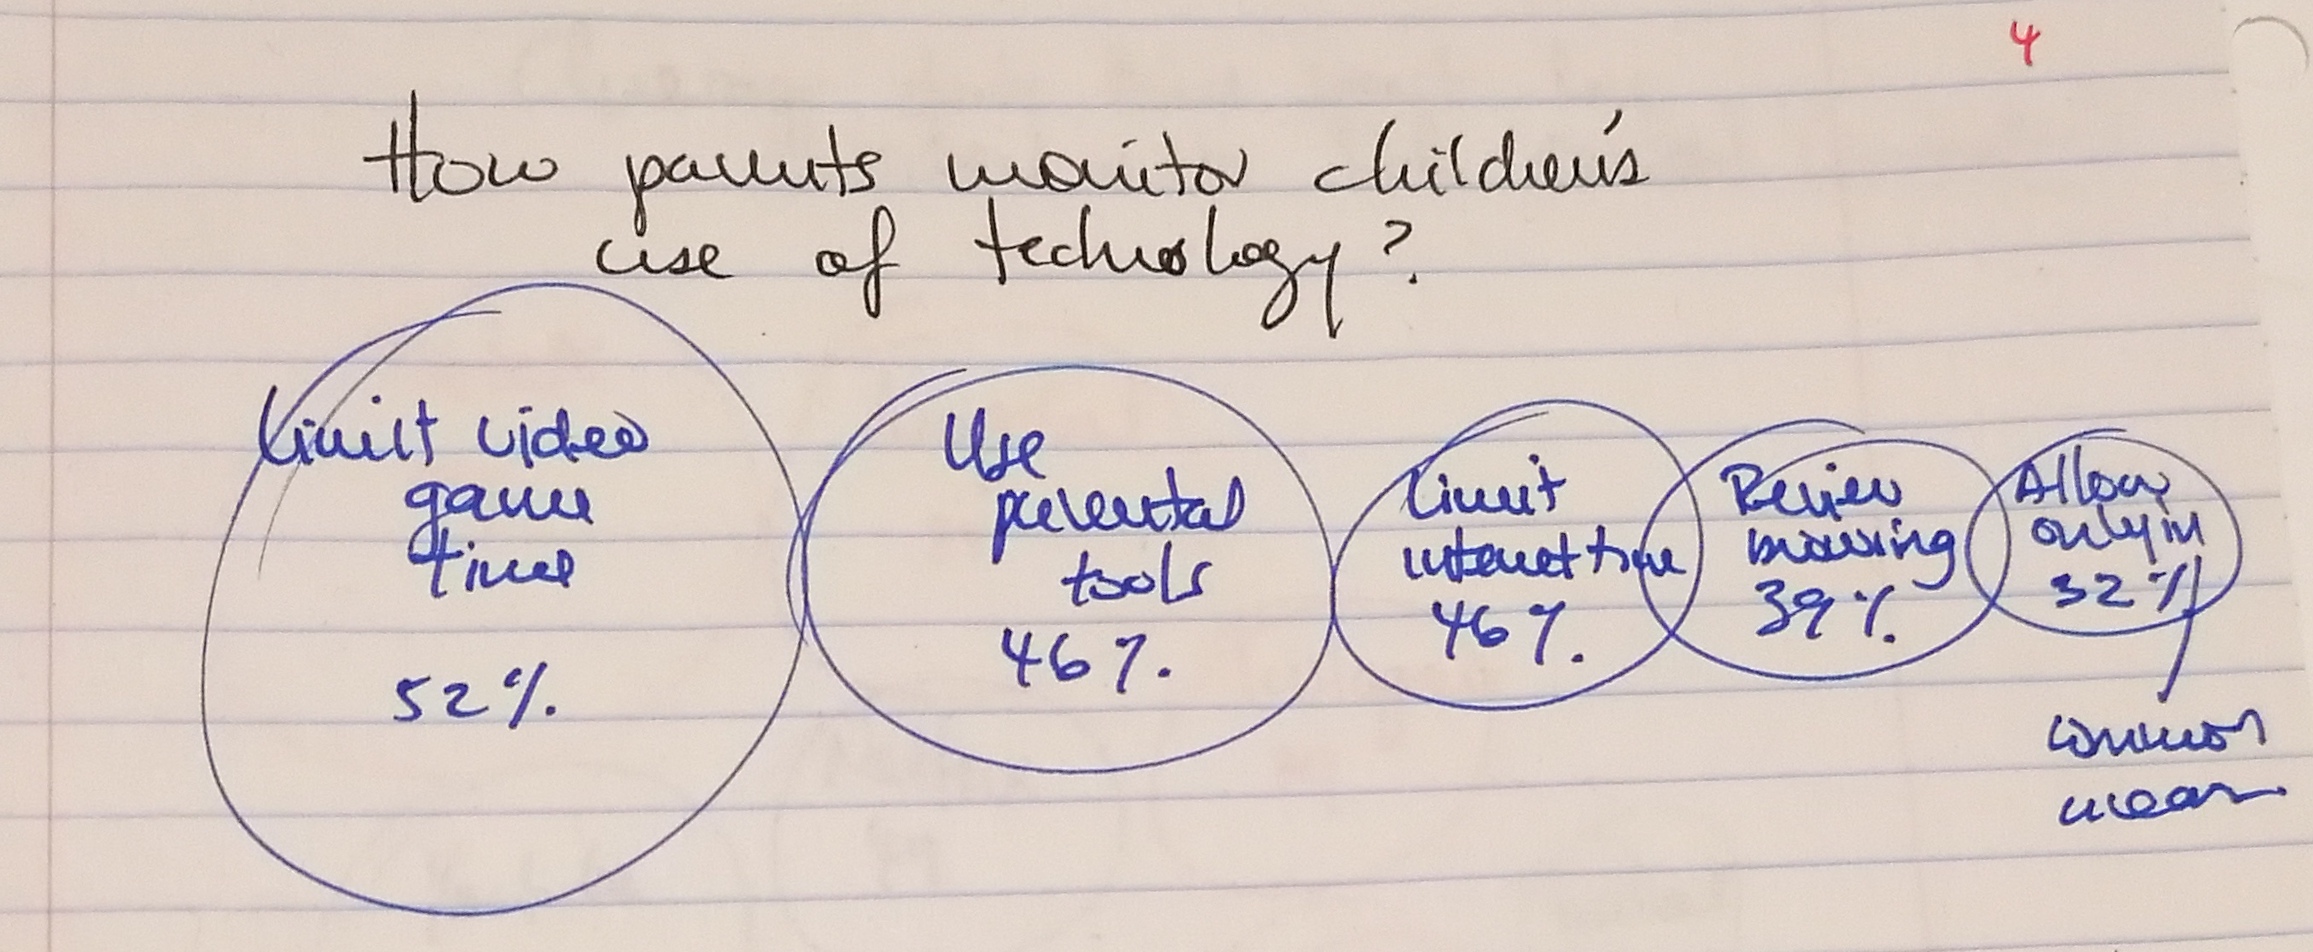 4
How parents monitor children's
use of technology?
Limit video
game
time
52%.
Use
parental
tools
46%.
Limit
internet time
46%.
Review
browsing
39%.
Allow
only in
32%
common